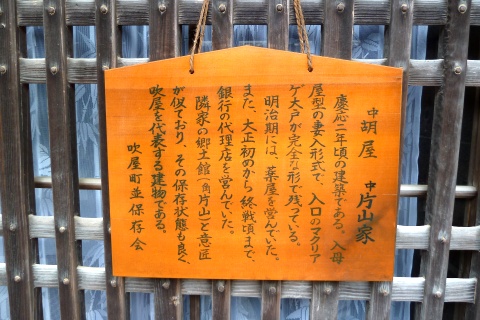 中胡屋 中片山家
慶応二年頃の建築である。入母
屋型の妻入形式で、入口のマクリア
ゲ大戸が完全な形で残っている。
明治期には、薬屋を営んでいた。
また、大正初めから終戦頃まで、
銀行の代理店を営んでいた。
隣家の郷土館(角片山)と意匠
が似ており、その保存状態も良く、
吹屋を代表する建物である。
吹屋町並保存会